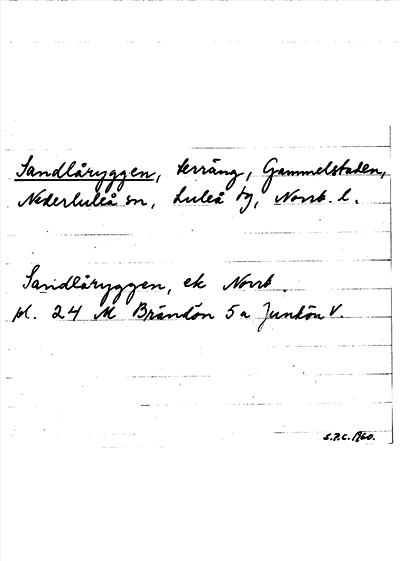 Sandlåryggen, terräng, Gammelstaden,
Nederluleå sn, Luleå tg, Norrb. l.
Sandlåryggen, ek Norrb.
pl. 24 M Brändön 5a Junkön V.
S.P.C. 1960.